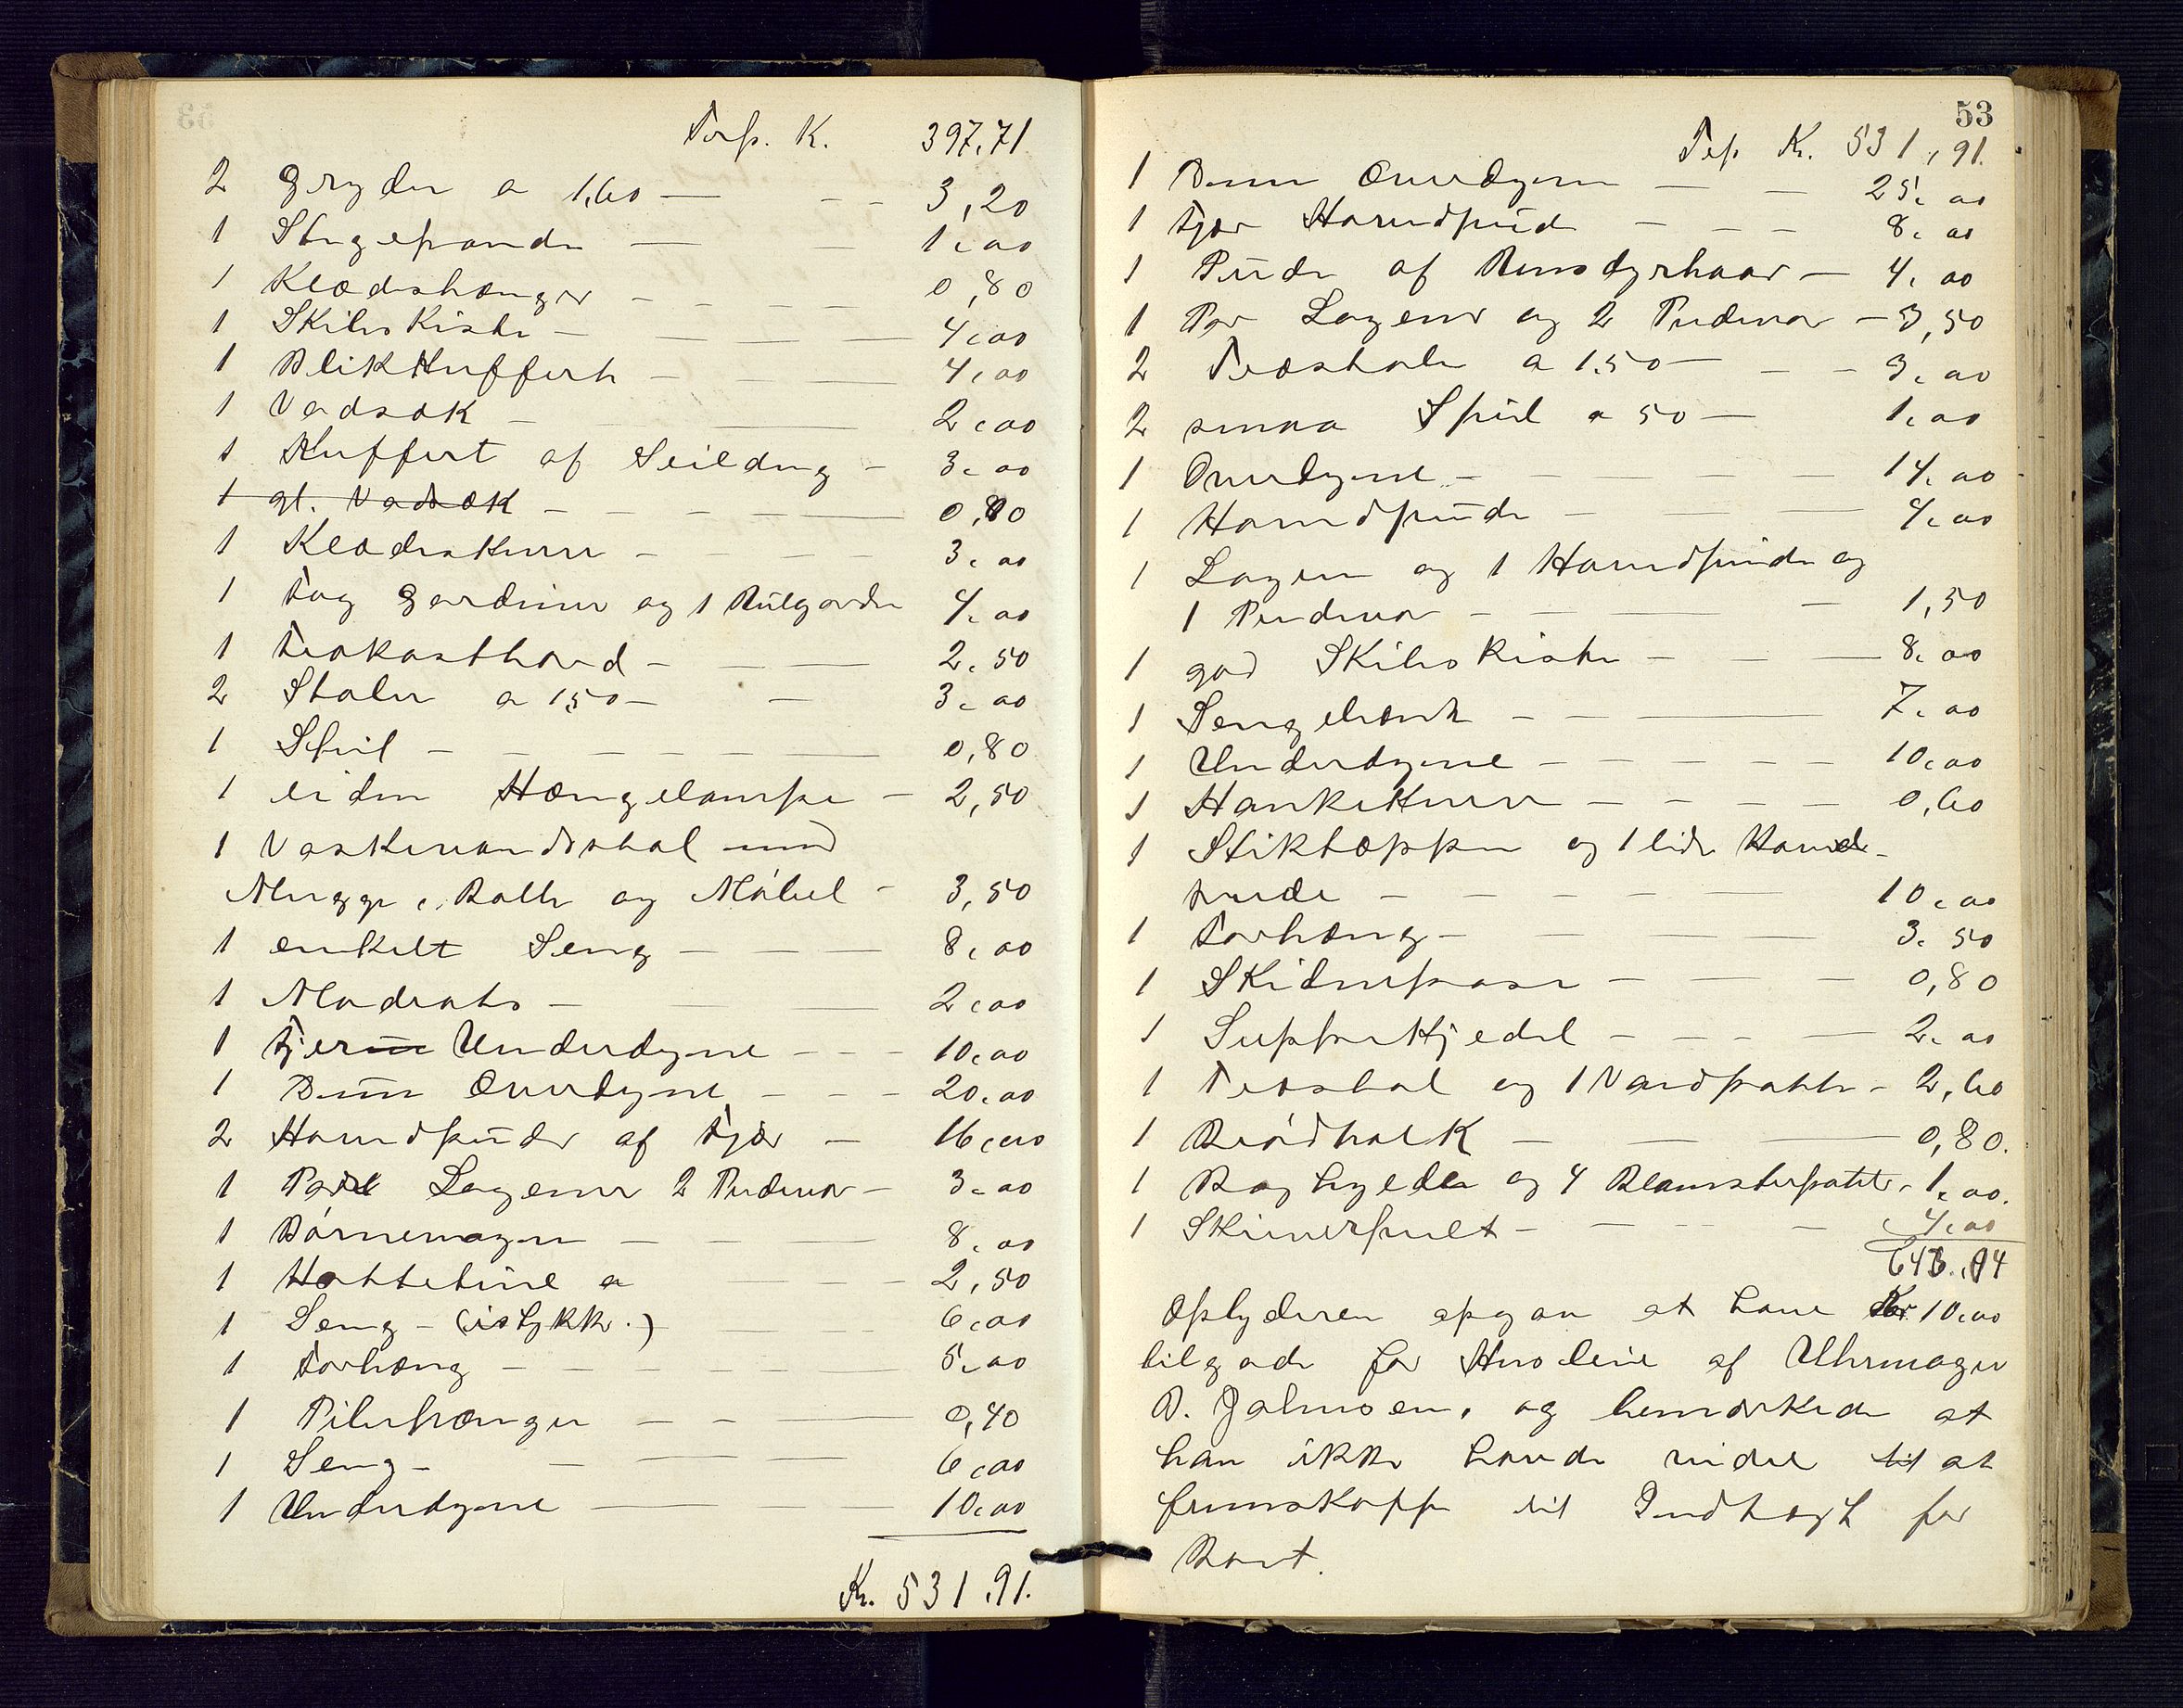 Trsp. K. 397,71
2 Gryder a 1,60 — 3,20
1 Stegepande — 1,00
1 Klædeshænger — 0,80
1 Skibskiste — 4,00
1 Blikkuffert — 4,00
1 Vadsæk — 2,00
1 Kuffert af Seildug — 3,00
1 gl. Vadsæk — 0,80
1 Klædeskurv — 3,00
1 Fag Gardiner og 1 Rulgardin 4,00
1 Frokostbord — 2,50
2 Stoler a 1,50 — 3,00
1 Speil — 0,80
1 liden Hængelampe — 2,50
1 Vaskevandsstol med
Mugge, Balle og Møbel — 3,50
1 enkelt Seng — 8,00
1 Madrats — 2,00
1 Fjer Underdyne — 10,00
1 Dun Overdyne — 20,00
2 Hovedpuder af Fjær — 16,00
1 Par Lagener 2 Pudevar — 3,00
1 Børnevogn — 8,00
1 Hattetine a — 2,50
1 Seng — (istykker.) — 6,00
1 Forhæng — 5,00
1 — 0,40
1 Seng — 6,00
1 Underdyne — 10,00
Kr. 531,91.
53
Trsp Kr. 531,91.
1 Dun Overdyne — 25,00
1 Fjær Hovedpude — 8,00
1 Pude af Rensdyrhaar — 4,00
1 Par Lagener og 2 Pudevar — 3,50
2 Træstole a 1.50 — 3,00
2 smaa Speil a 50 — 1,00
1 Overdyne — 14,00
1 Hovedpude — 4,00
1 Lagen og 1 Hovedpude og
1 Pudevar — 1,50
1 god Skibskiste — 8,00
1 Sengebænk — 7,00
1 Underdyne — 10,00
1 Hankekurv — 0,60
1 Stiktæppe og 1 lide Hovede-
pude — 10,00
1 Forhæng — 3,50
1 — 0,80
1 Suppekjedel — 2,00
1 Træstol og 1 Vandpotte — 2,60
1 Brødbakk — 0,80.
1 Baghylde og 4 Blomsterpotter — 1,00.
1 Skriverpult — 4,00
Opbyderen opgav at have Kr. 10,00
tilgode for Husleie af Uhrmager
B. Johnsen, og bemærkede at
han ikke havde videre til at
fremskaffe til Indtægt for
Boet.